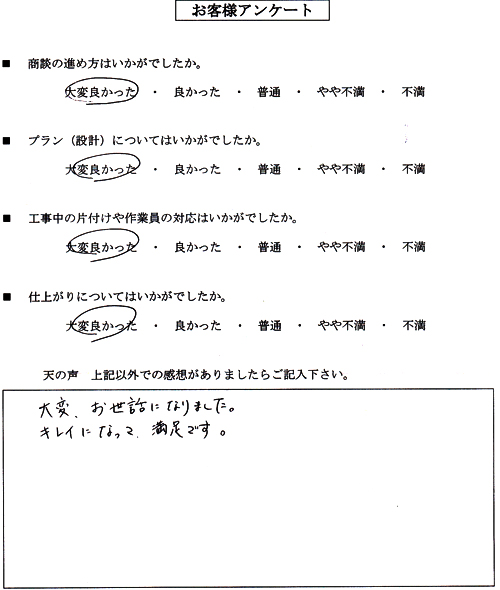 お客様アンケート
■ 商談の進め方はいかがでしたか。
大変良かった ・ 良かった ・ 普通 ・ やや不満 ・ 不満
■ プラン（設計）についてはいかがでしたか。
大変良かった ・ 良かった ・ 普通 ・ やや不満 ・ 不満
■ 工事中の片付けや作業員の対応はいかがでしたか。
大変良かった ・ 良かった ・ 普通 ・ やや不満 ・ 不満
■ 仕上がりについてはいかがでしたか。
大変良かった ・ 良かった ・ 普通 ・ やや不満 ・ 不満
天の声 上記以外での感想がありましたらご記入下さい。
大変、お世話になりました。
キレイになって、満足です。